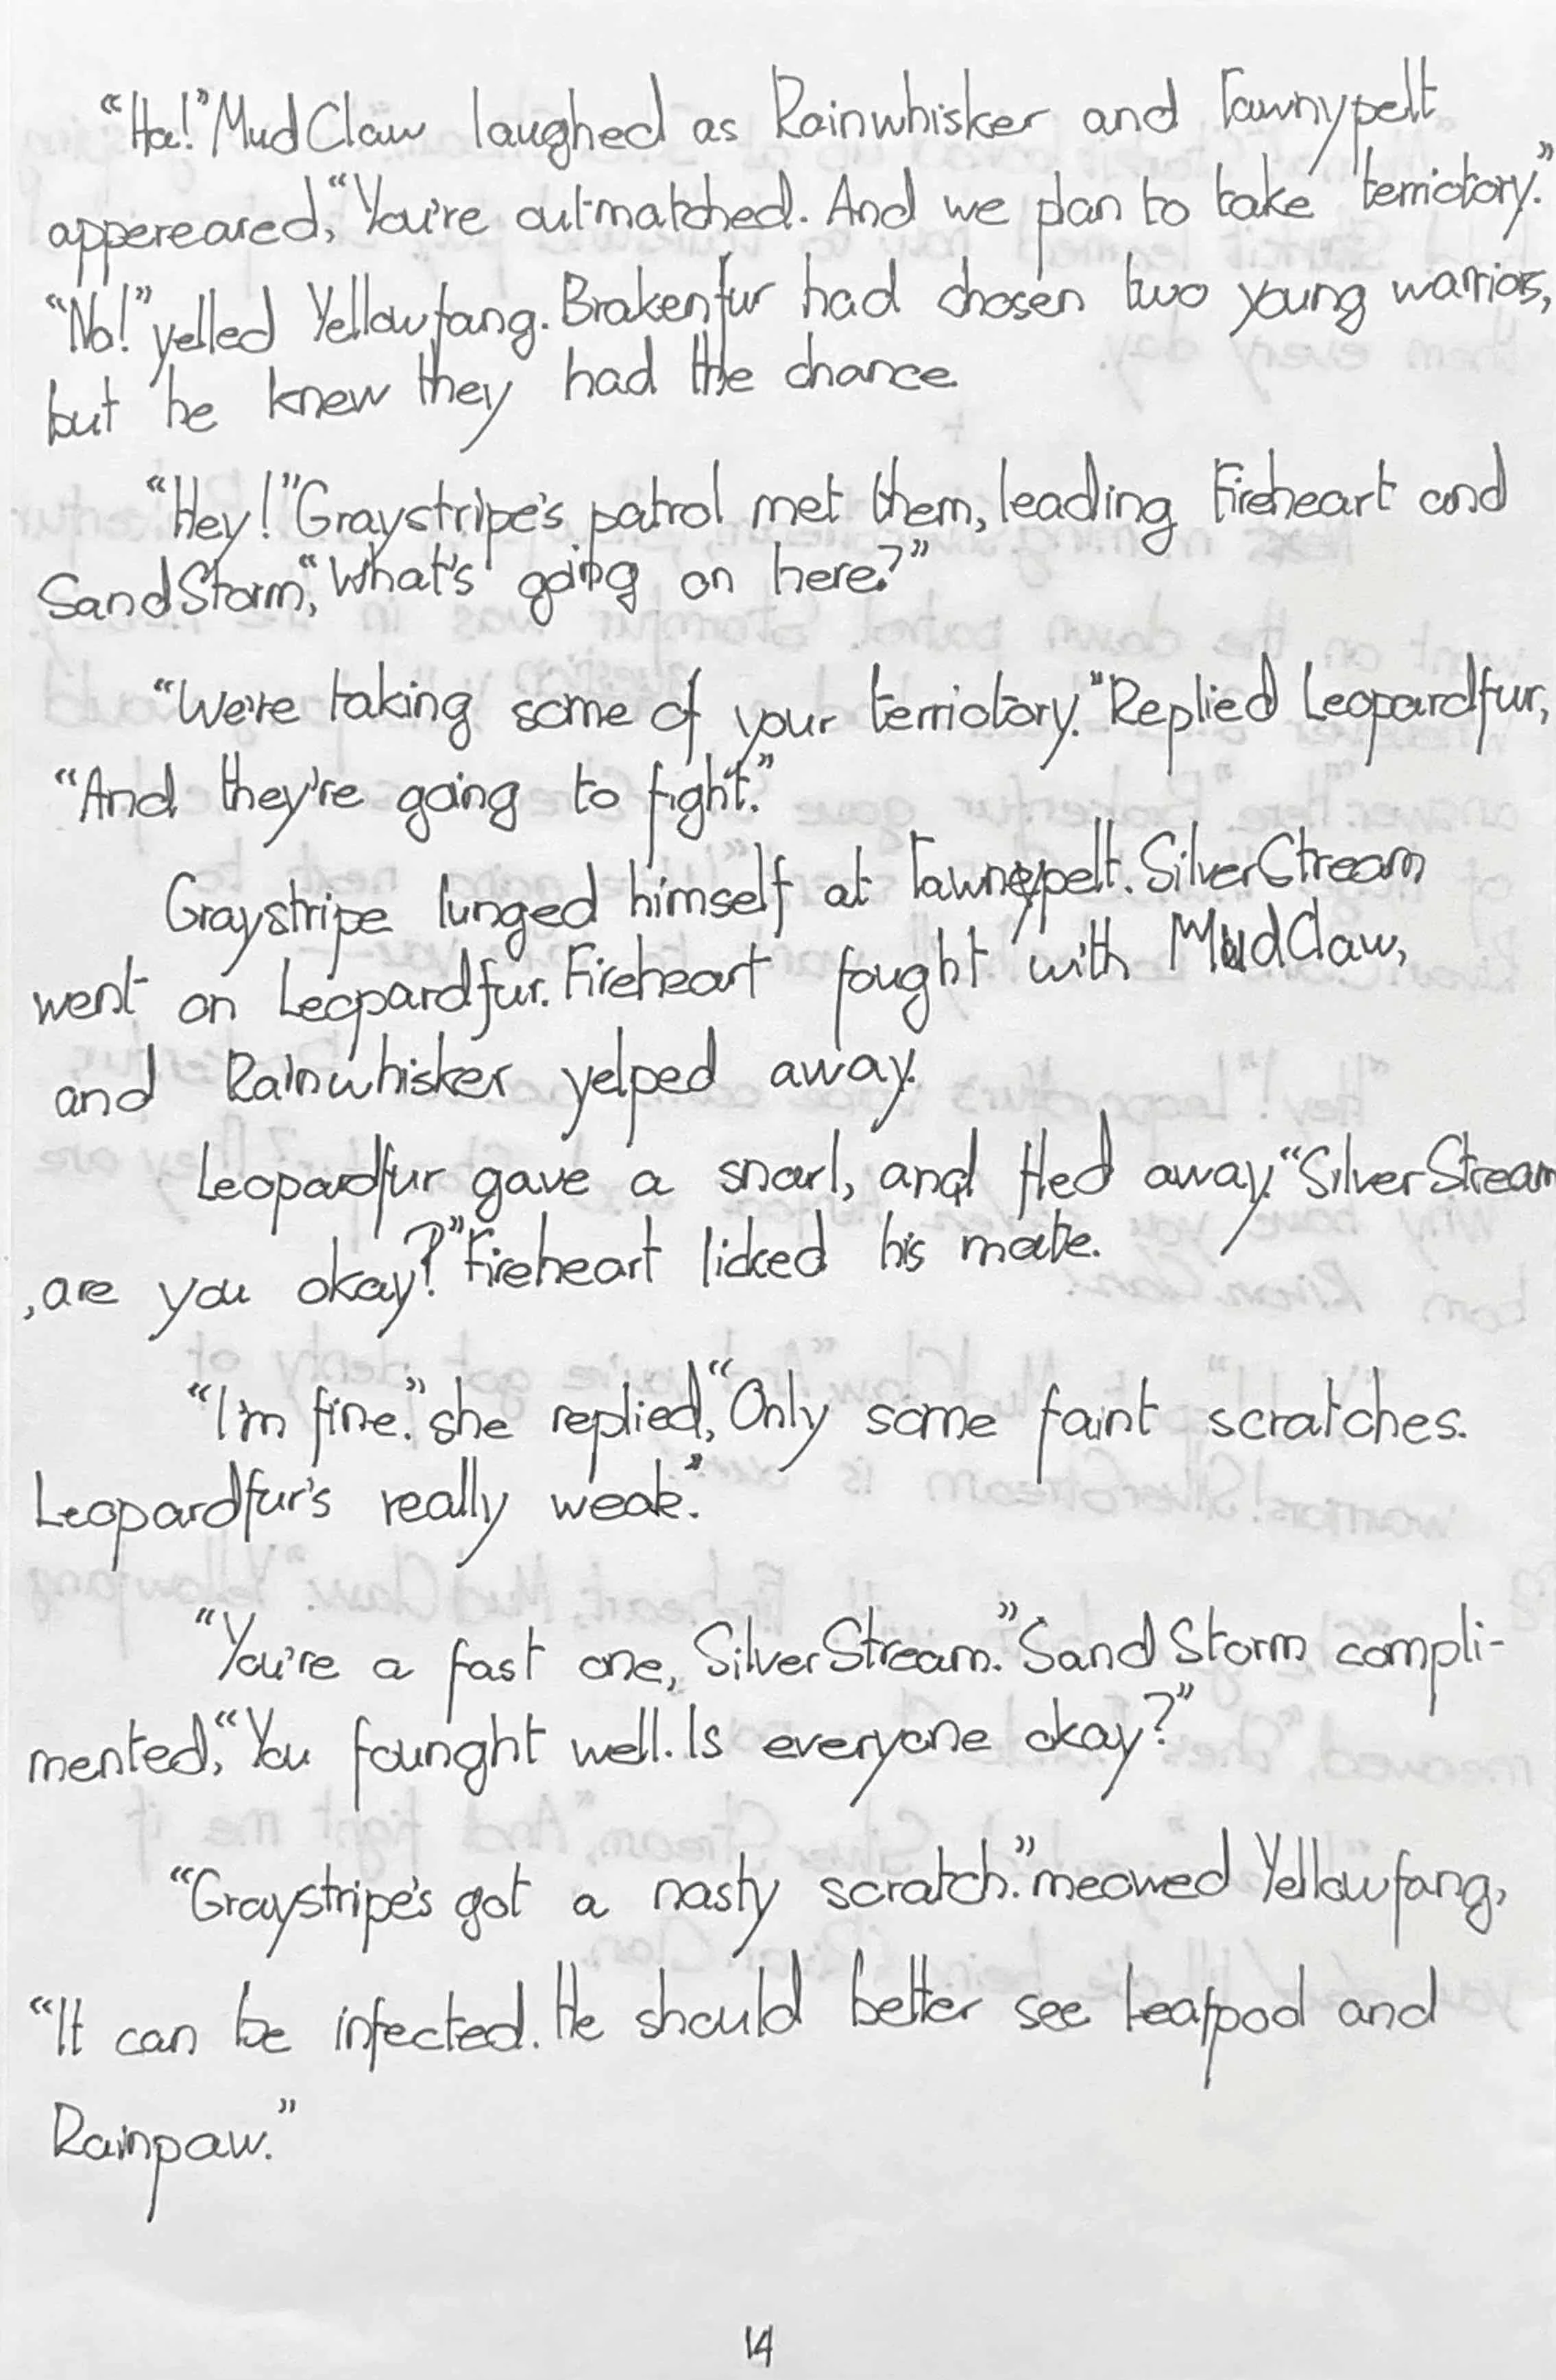 “Ha!” MudClaw laughed as Rainwhisker and Tawnypelt
appereared, “You're outmatched. And we plan to take terriotory.”
“No!” yelled Yellowfang. Brakenfur had chosen two young warriors,
but he knew they had the chance.
“Hey!” Graystripe's patrol met them, leading Fireheart and
SandStorm, “What's going on here?”
“We're taking some of your terriotory.” Replied Leopardfur,
“And they're going to fight.”
Graystripe lunged himself at Tawnypelt. SilverStream
went on Leopardfur. Fireheart fought with MudClaw,
and Rainwhisker yelped away.
Leopardfur gave a snarl, and fled away. “SilverStream
, are you okay?” Fireheart licked his mate.
“I'm fine.” she replied, “Only some faint scratches.
Leopardfur's really weak.”
“You're a fast one, SilverStream.” SandStorm compli-
mented, “You founght well. Is everyone okay?”
“Graystripe's got a nasty scratch.” meowed Yellowfang,
“It can be infected. He should better see Leafpod and
Rainpaw.”
14